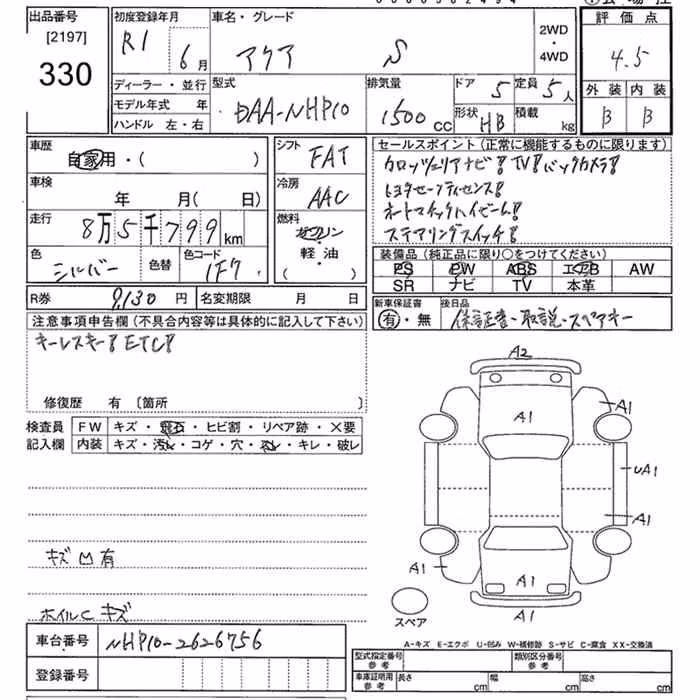 出品番号 初度登録年月 車名・グレード 評価点
[2197] R1 6月 アクア S 2WD・4WD 4.5
330
ディーラー・並行 型式 排気量 ドア 5 定員 5人 外装 内装
モデル年式 年 DAA-NHP10 1500cc 形状 HB 積載 kg B B
ハンドル 左・右
車歴 シフト セールスポイント(正常に機能するものに限ります)
自家用・( ) FAT カロッツェリアナビ! TV! バックカメラ!
車検 冷房 トヨタセーフティセンス!
年 月( 日) AAC オートマチックハイビーム!
走行 8万5千799km 燃料 ステアリングスイッチ!
ガソリン・軽油 ( )
色 シルバー 色替 色コード 1F7 装備品(純正品に限り○をつけてください)
PS PW ABS エアB AW
SR ナビ TV 本革
R券 9,130円 名変期限 月 日 新車保証書 後日品
有・無 保証書・取説・スペアキー
注意事項申告欄(不具合内容等は具体的に記入して下さい)
キーレスキー! ETC!
修復歴 有 〔箇所 〕
検査員 FW キズ・飛石・ヒビ割・リペア跡・X要
記入欄 内装 キズ・汚れ・コゲ・穴・スレ・キレ・破レ
A2
A1
A1
UA1
A1
キズ凹有
A1 A1
A1
スペア
ホイルC キズ
A-キズ E-エクボ U-凹み W-補修跡 S-サビ C-腐食 XX-交換済
車台番号 NHP10-2626756
型式指定番号 参考 類別区分番号 参考
登録番号 車庫証明用 参考 長さ cm 幅 cm 高さ cm